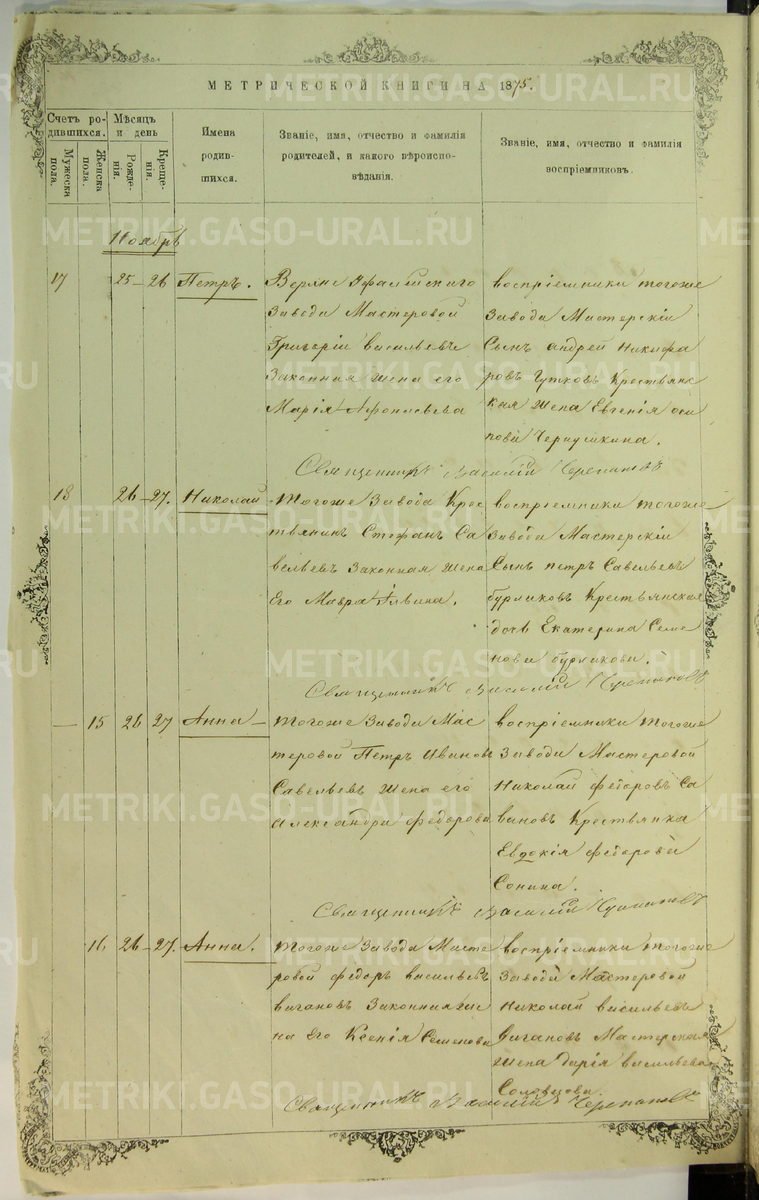 МЕТРИЧЕСКОЙ КНИГИ НА 1875.
Счетъ ро-
дившихся.
Мужеска
пола.
Женска
пола.
Мѣсяцъ
и день
Рожде-
нія.
Креще-
нія.
Имена
родив-
шихся.
Званіе, имя, отчество и фамилія
родителей, и какого вѣроиспо-
вѣданія.
Званіе, имя, отчество и фамилія
воспріемниковъ.
Ноябрь
17 25-26 Петръ.
Верхне Уфалейскаго
Завода Мастеровой
Григорій васильевъ
Законная жена его
Марія
воспріемники тогоже
Завода Мастерскій
Сынъ андрей Никифа
ровъ Гутковъ Крестьянс
кая жена Евгенія оси
пова Чернушкина.
Священникъ Василій Черепановъ
18 26-27. Николай
Тогоже Завода Крес
тьянинъ Стефанъ Са
вельевъ Законная жена
Его Мавра
воспріемники тогоже
Завода Мастерскій
Сынъ петръ Савельевъ
бурлаковъ Крестьянская
дочь Екатерина Семе
нова бурлакова.
Священникъ Василій Черепановъ
— 15 26 27 Анна —
Тогоже Завода Мас
теровой Петръ Ивановъ
Савельевъ жена его
Александра федорова
воспріемники тогоже
Завода Мастеровой
Николай федоровъ Са
вановъ Крестьянка
Евдокія федорова
Сонина.
Священникъ Василій Черепановъ
16 26-27. Анна.
Тогоже Завода Масте
ровой федоръ васильевъ
вагановъ Законная же
на Его Ксенія Семенова
воспріемники тогоже
Завода Мастеровой
Николай васильевъ
вагановъ Мастерская
жена дарія васильева
Соловцова.
Священникъ Василій Черепановъ
METRIKI.GASO-URAL.RU